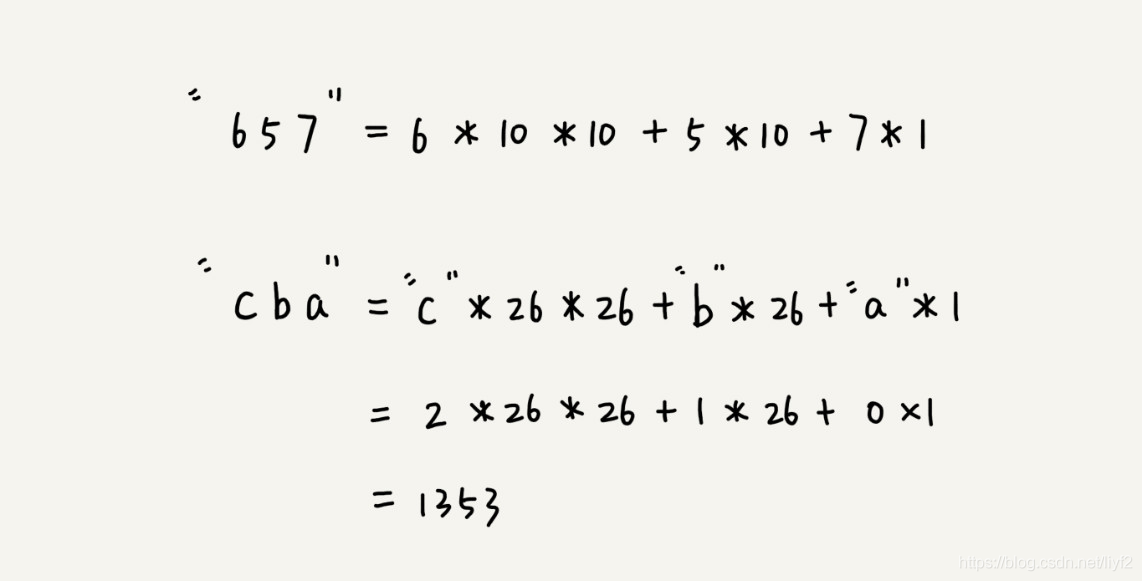 "657" = 6 * 10 * 10 + 5 * 10 + 7 * 1
"cba" = "c" * 26 * 26 + "b" * 26 + "a" * 1
= 2 * 26 * 26 + 1 * 26 + 0 × 1
= 1353
https://blog.csdn.net/liyf2